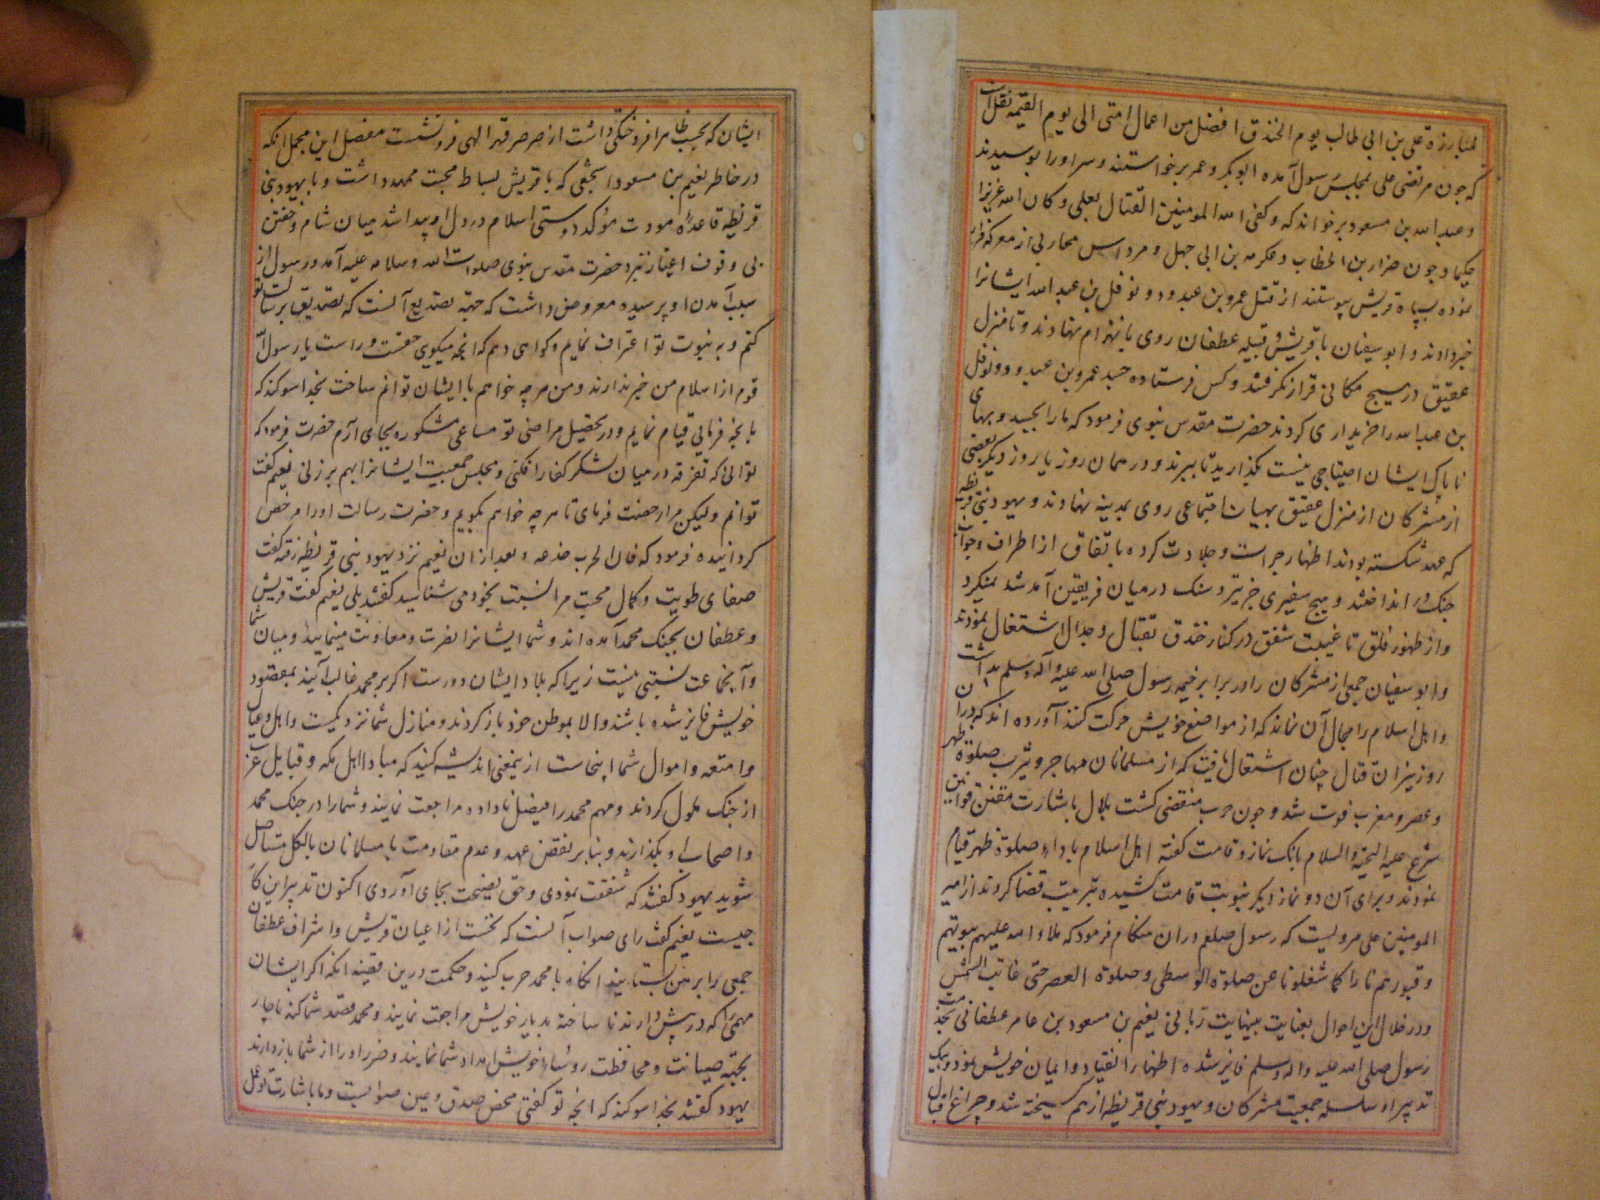 لمبارزة علی بن ابی طالب یوم الخندق افضل من اعمال امتی الی یوم القیمه نقل است
که چون مرتضی علی بمجلس رسول آمده ابوبکر و عمر برخواستند و سر او را بوسیدند
و عبدالله بن مسعود برخواند که و کفی الله المومنین القتال بعلی و کان الله عزیزا
حکیما و چون ضرار بن الخطاب و عکرمه بن ابی جهل و مرداس محاربی از معرکه فرار
نموده بسپاه قریش پیوستند از قتل عمرو بن عبدود و نوفل بن عبدالله ایشانرا
خبر دادند و ابوسفیان با قریش و قبیله غطفان روی بانهزام نهادند و تا منزل
عقیق در هیچ مکانی قرار نگرفتند و کس فرستاده جسد عمرو بن عبدود و نوفل
بن عبدالله را خریداری کردند حضرت مقدس نبوی فرمود که ما را بجسد و بهای
ناپاک ایشان احتیاجی نیست بگذارید تا ببرند و در همان روز یا روز دیگر بعضی
از مشرکان از منزل عقیق بهیات اجتماعی روی بمدینه نهادند و یهود بنی قریظه
که عهد شکسته بودند اظهار جرات و جلادت کرده باتفاق از اطراف و جوانب
جنک در انداختند و هیچ سفیری جز تیر و سنک در میان فریقین آمد شد نمیکرد
و از ظهور فلق تا غیبت شفق در کنار خندق بقتال و جدال اشتغال نمودند
و ابوسفیان جمعی از مشرکان را در برابر خیمه رسول صلی الله علیه و آله وسلم بداشت
و اهل اسلام را مجال آن نماند که از مواضع خویش حرکت کنند آورده اند که در آن
روز نیران قتال چنان اشتعال یافت که از مسلمانان مهاجر و یثرب صلوة ظهر
و عصر و مغرب فوت شد و چون حرب منقضی کشت بلال باشارت مقنن قوانین
شرع علیه التحیة والسلام بانک نماز و قامت کفته اهل اسلام باداء صلوة ظهر قیام
نمودند و برای آن دو نماز دیگر بنوبت قامت کشیده بترتیب قضا کردند از امیر
المومنین علی مرویست که رسول صلعم در آن هنکام فرمود که ملاء الله علیهم بیوتهم
و قبورهم نارا کما شغلونا عن صلوة الوسطی و صلوة العصر حتی غابت الشمس
و در خلال این احوال بعنایت بینهایت ربانی نعیم بن مسعود بن عامر غطفانی بخدمت
رسول صلی الله علیه و اله وسلم فایز شده اظهار انقیاد و ایمان خویش نمود و بیک
تدبیر او سلسله جمعیت مشرکان و یهود بنی قریظه از هم کسیخته شد و چراغ اقبال
ایشان که بحسب ظاهر افروختکی داشت از صرصر قهر الهی فرو نشست مفصل این مجمل انکه
در خاطر نعیم بن مسعود اشجعی که با قریش بساط محبت ممهد داشت و با یهود بنی
قریظه قاعدهٔ مودت موکد دوستی اسلام در دل او پیدا شد میان شام و خفتن
بی وقوف اغیار نزد حضرت مقدس نبوی صلوات الله و سلامه علیه آمد و رسول از
سبب آمدن او پرسیده معروض داشت که جهة تصدیع آنست که تصدیق برسالت تو
کنم و به نبوت تو اعتراف نمایم و کواهی دهم که انچه میکویی حقست و راست یا رسول الله
قوم از اسلام من خبر ندارند و من هر چه خواهم با ایشان توانم ساخت بخدا سوکند که
بانچه فرمایی قیام نمایم و در تحصیل مراضی تو مساعی مشکوره بجای آرم حضرت فرمود که
توانی که تفرقه در میان لشکر کفار افکنی و مجلس جمعیت ایشانرا بهم برزنی نعیم کفت
توانم ولیکن مرا رخصت فرمای تا هر چه خواهم بکویم و حضرت رسالت او را مرخص
کردانیده فرمود که فان الحرب خدعه و بعد از ان نعیم نزد یهود بنی قریظه رفته کفت
صفای طویت و کمال محبت مرا نسبت بخود می شناسید کفتند بلی نعیم کفت قریش
و غطفان بجنک محمد آمده اند و شما ایشانرا نصرت و معاونت مینمایید و میان شما
و آنجماعت نسبتی نیست زیرا که بلاد ایشان دورست اکر بر محمد غالب آیند بمقصود
خویش فایز شده باشند والا بموطن خود باز کردند و منازل شما نزدیکست و اهل و عیال
و امتعه و اموال شما اینجاست از نمعنی اندیشه کنید که مبادا اهل مکه و قبایل عرب
از جنک ملول کردند و مهم محمد را فیصل ناداده مراجعت نمایند و شما را در جنک محمد
و اصحاب او بکذارند و بنابر نقض عهد و عدم مقاومت با مسلمانان بالکل مستاصل
شوید یهود کفتند که شفقت نمودی و حق نصیحت بجای آوردی اکنون تدبیر این کار
چیست نعیم کفت رای صواب آنست که نخست از اعیان قریش و اشراف غطفان
جمعی را برهن بستانید انکاه با محمد حرب کنید و حکمت درین قضیه انکه اکر ایشان
مهمی را که در پیش دارند نا ساخته بدیار خویش مراجعت نمایند و محمد قصد شما کند ناچار
بجهة صیانت و محافظت روساء خویش امداد شما نمایند و ضرر او را از شما باز دارند
یهود کفتند بخدا سوکند که انچه تو کفتی محض صدق و عین صوابست و ما باشارت تو عمل